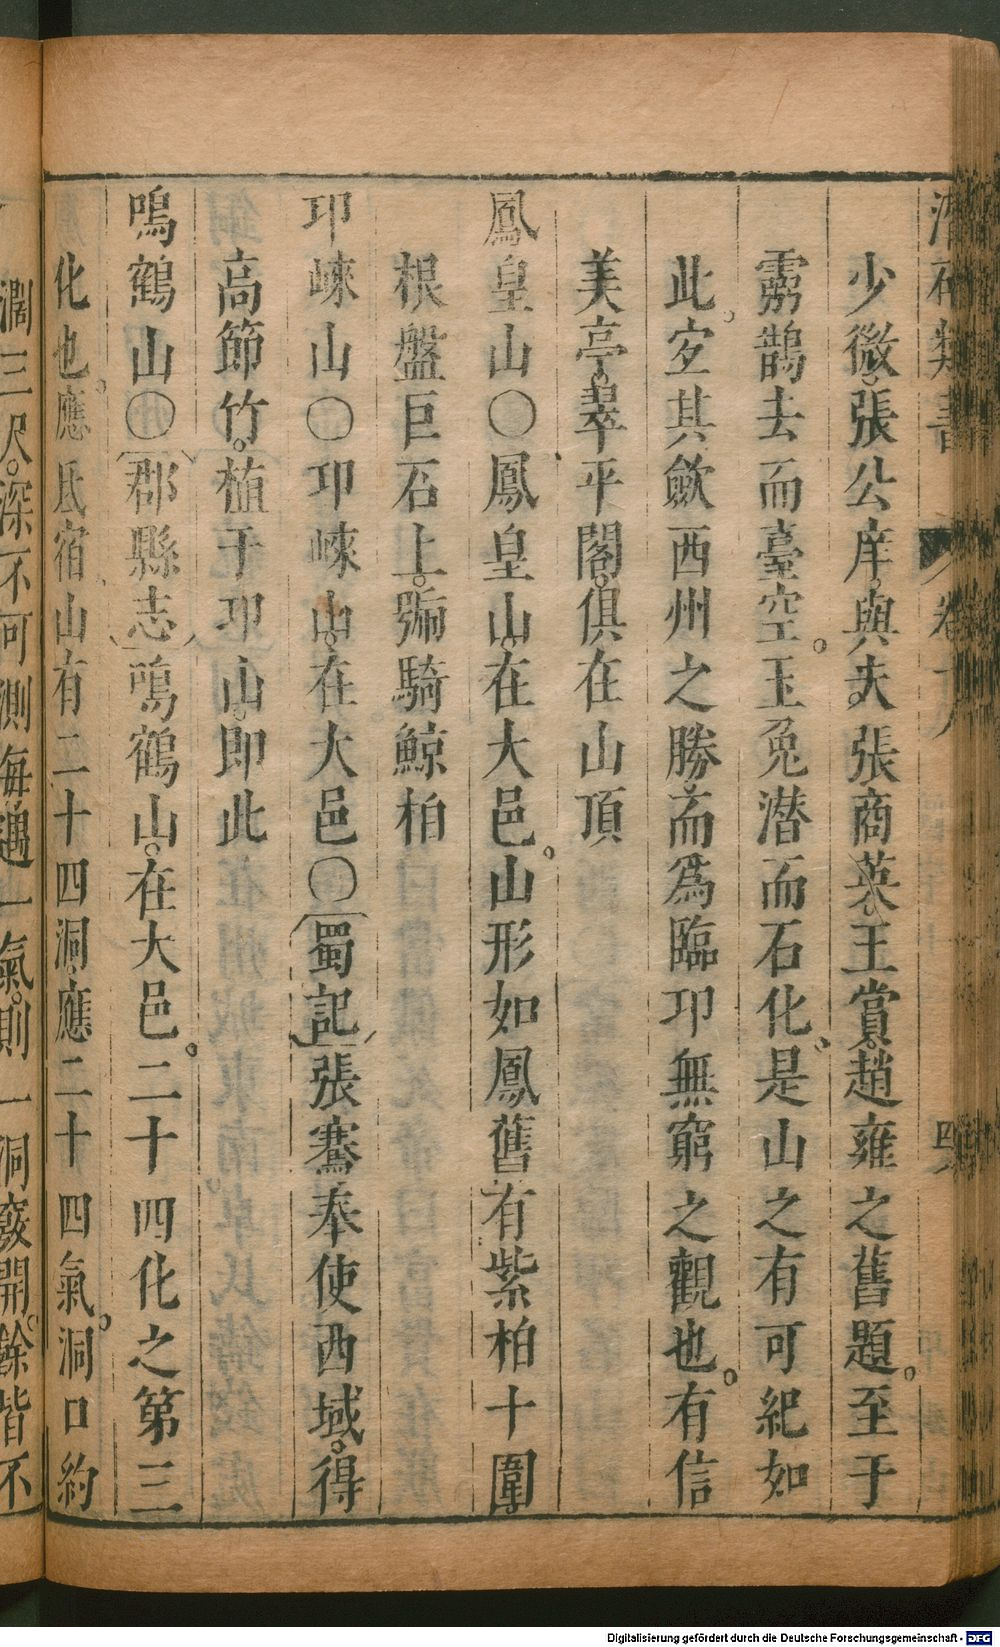 少微張公庠與夫張商英王賞趙雍之舊題至于
霛鵲去而臺空玉兔潜而石化是山之有可紀如
此宐其歛西州之勝而爲臨邛無窮之觀也有信
美亭翠平閣俱在山頂
鳳皇山○鳳皇山在大邑山形如鳳舊有紫柏十圍
根盤巨石上號騎鯨柏
邛崍山○邛崍山在大邑○蜀記張騫奉使西域得
高節竹植于邛山即此
鳴鶴山○郡縣志鳴鶴山在大邑二十四化之第三
化也應氐宿山有二十四洞應二十四氣洞口約
濶三尺深不可測每遇一氣則一洞竅開餘皆不
Digitalisierung gefördert durch die Deutsche Forschungsgemeinschaft - DFG